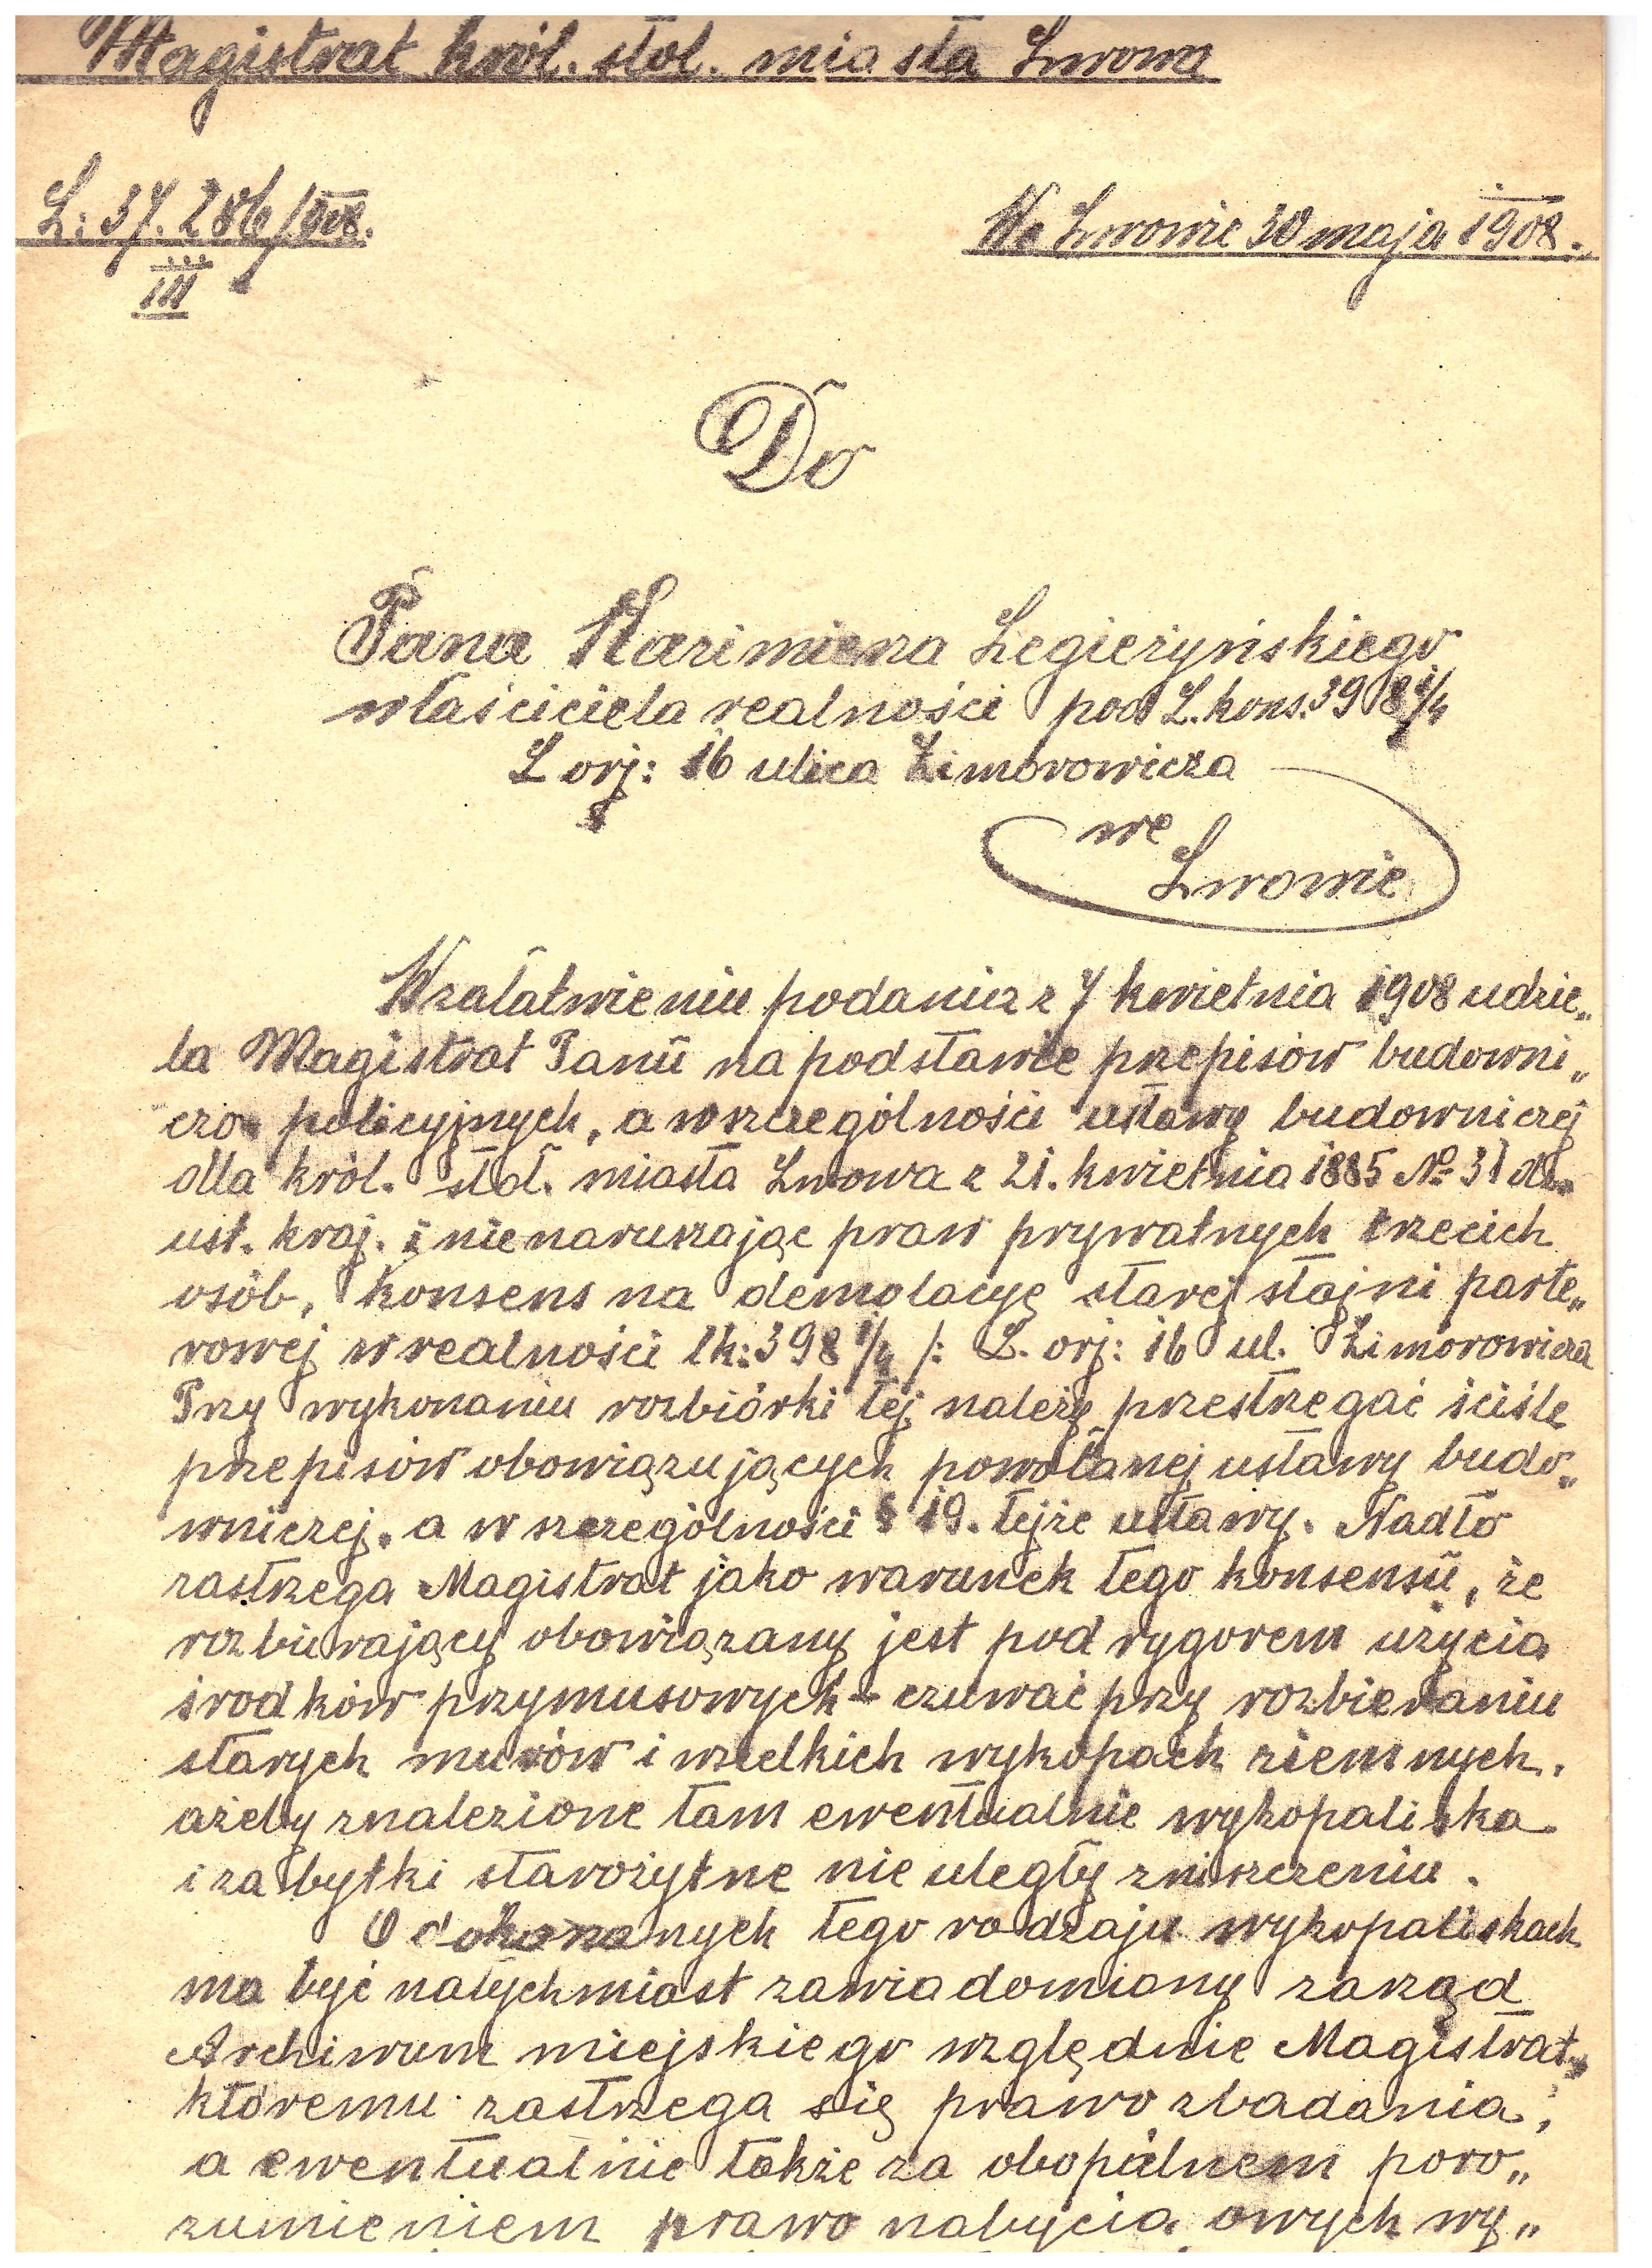 Magistrat król. stoł. miasta Lwowa
L: 37.286/908.
III
We Lwowie 30 maja 1908.
Do
Pana Kazimierza Legieżyńskiego
właściciela realności pod L. kons. 398 1/4
L orj: 16 ulica Zimorowicza
we
Lwowie
W załatwieniu podania z 7 kwietnia 1908 udzie„
la Magistrat Panu na podstawie przepisów budowni„
czo policyjnych, a w szczególności ustawy budowniczej
dla król. stoł. miasta Lwowa z 21. kwietnia 1885 № 31 dz.
ust. kraj. i nienaruszając praw prywatnych trzecich
osób, konsens na demolacyę starej stajni parte„
rowej w realności lk: 398 1/4 /: L. orj: 16 ul. Zimorowicza
Przy wykonaniu rozbiórki tej należy przestrzegać ściśle
przepisów obowiązujących powołanej ustawy budo„
wniczej, a w szczególności § 19. tejże ustawy. Nadto
zastrzega Magistrat jako warunek tego konsensu, że
rozbierający obowiązany jest pod rygorem użycia
środków przymusowych - czuwać przy rozbieraniu
starych murów i wszelkich wykopach ziemnych,
ażeby znalezione tam ewentualnie wykopaliska
i zabytki starożytne nie uległy zniszczeniu.
O dokonanych tego rodzaju wykopaliskach
ma być natychmiast zawiadomiony zarząd
Archiwum miejskiego względnie Magistrat,
któremu zastrzega się prawo zbadania,
a ewentualnie także za obopólnem poro„
zumieniem prawo nabycia owych wy„